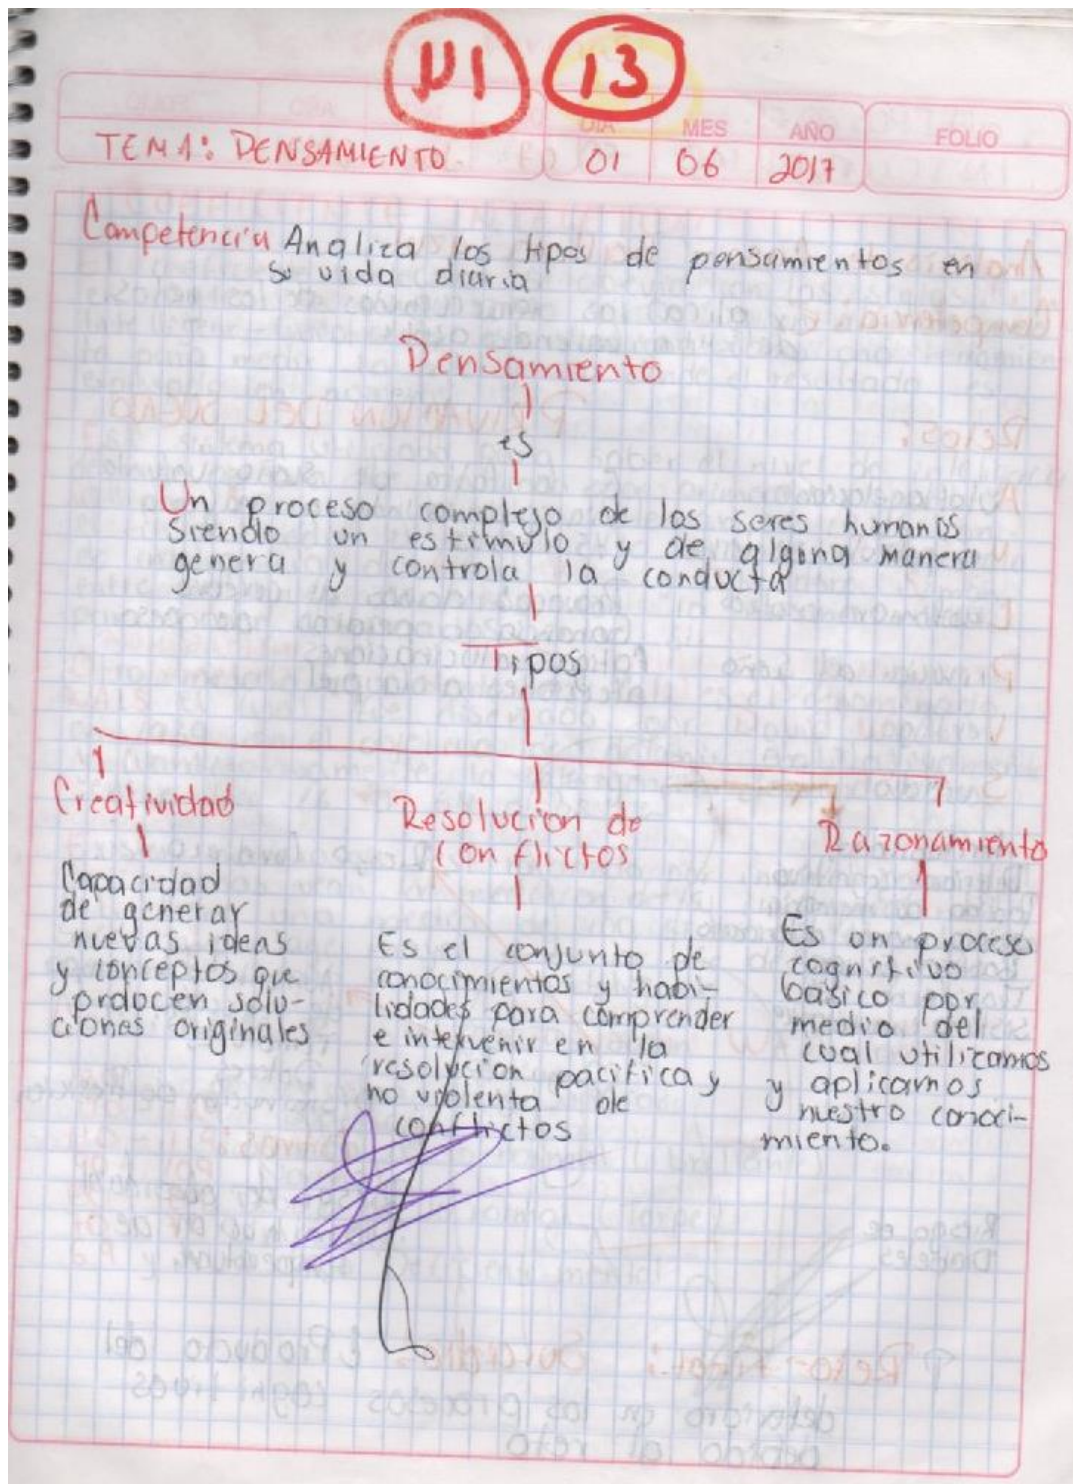 U1 13
DIA MES AÑO FOLIO
TEMA: PENSAMIENTO 01 06 2017
Competencia Analiza los tipos de pensamientos en
su vida diaria
Pensamiento
es
Un proceso complejo de los seres humanos
Siendo un estimulo y de alguna manera
genera y controla la conducta
Tipos
Creatividad
Capacidad
de generar
nuevas ideas
y conceptos que
producen solu-
ciones originales
Resolucion de
conflictos
Es el conjunto de
conocimientos y habi-
lidades para comprender
e intervenir en la
resolucion pacifica y
no violenta de
conflictos
Razonamiento
Es un proceso
cognitivo
basico por
medio del
cual utilizamos
y aplicamos
nuestro conoci-
miento.